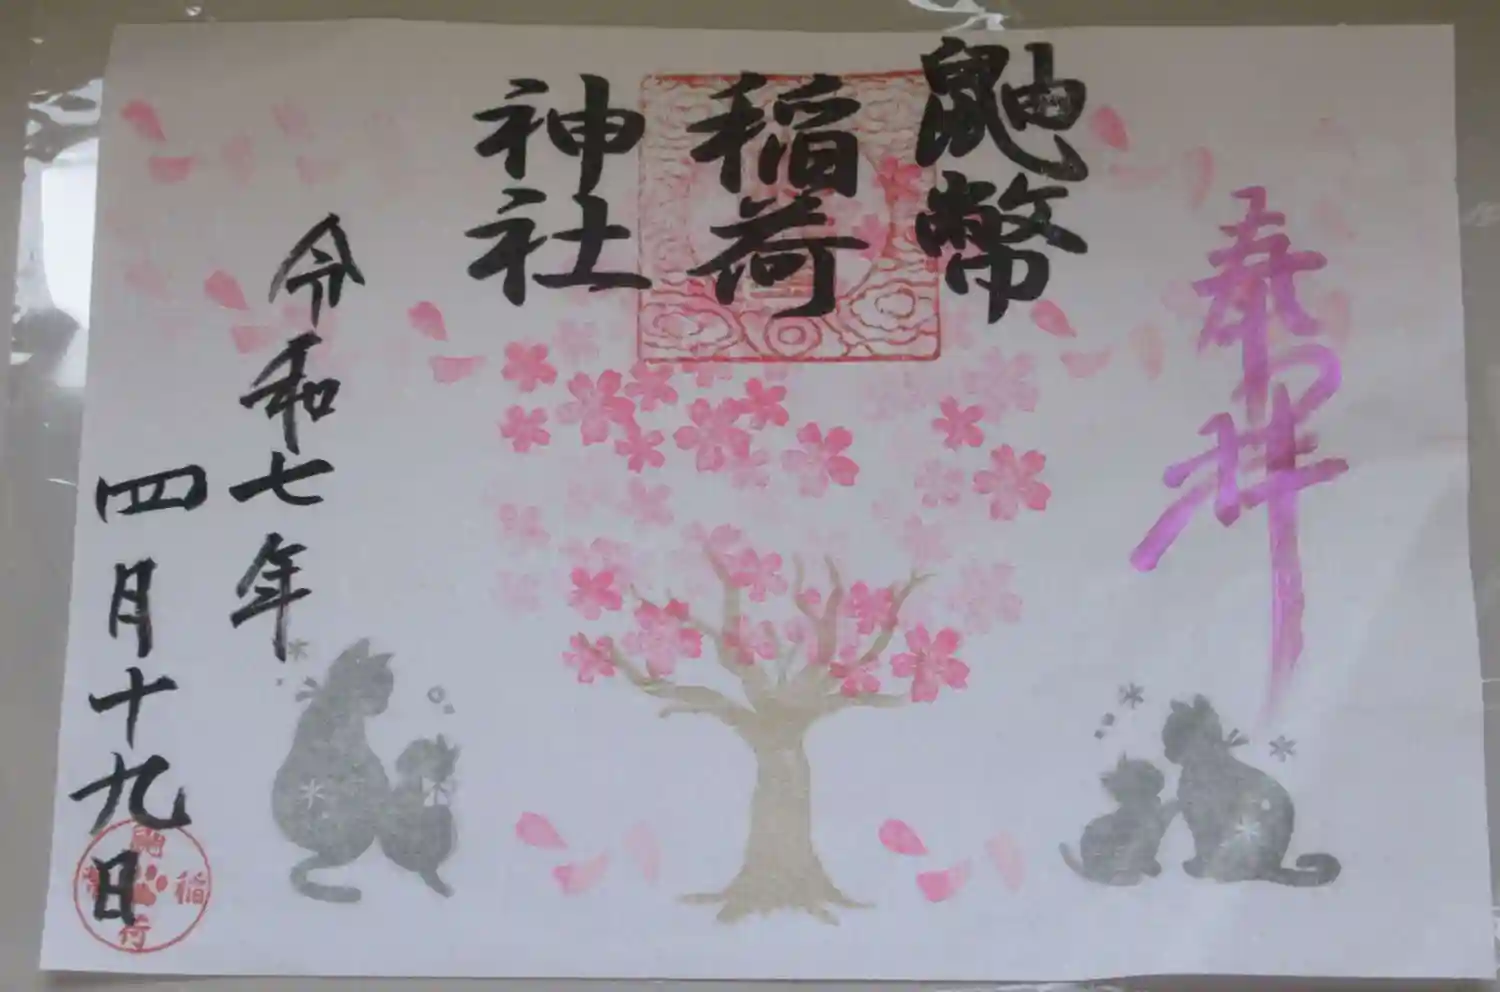 奉拝
鼬幣
稲荷
神社
令和七年
四月十九日
鼬幣稲荷